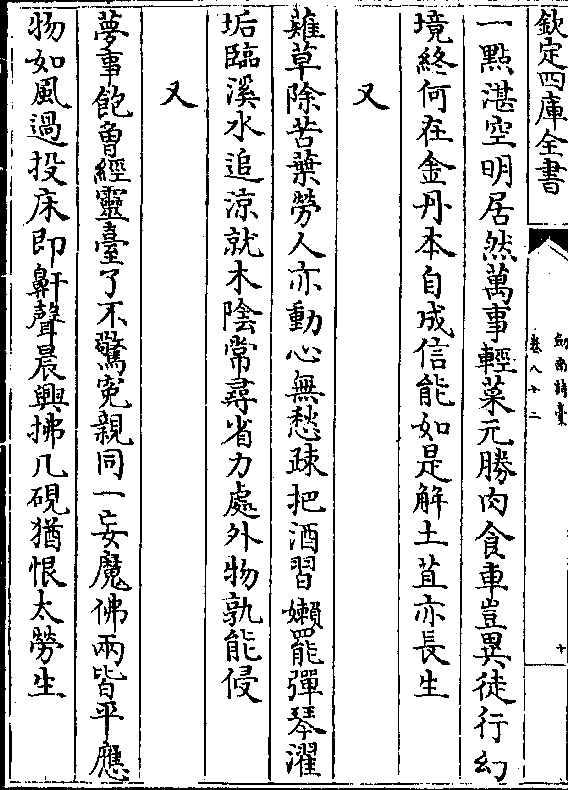 欽定四庫全書
劍南詩藁
卷八十二
十
一點湛空明居然萬事輕菜元勝肉食車豈異徒行幻
境終何在金丹本自成信能如是解土苴亦長生
又
薙草除苦蘖勞人亦動心無愁疎把酒習嬾罷彈琴濯
垢臨溪水追涼就木陰常尋省力處外物孰能侵
又
夢事飽曽經靈臺了不驚寃親同一妄魔佛兩皆平應
物如風過投床即鼾聲晨興拂几硯猶恨太勞生